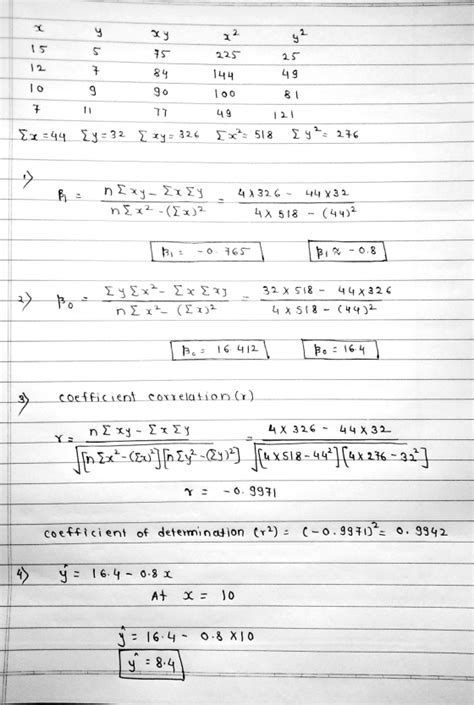 x y xy x² y²
15 5 75 225 25
12 7 84 144 49
10 9 90 100 81
7 11 77 49 121
Σx = 44 Σy = 32 Σxy = 326 Σx² = 518 Σy² = 276
1) β₁ = (nΣxy - ΣxΣy) / (nΣx² - (Σx)²) = (4 x 326 - 44 x 32) / (4 x 518 - (44)²)
β₁ = -0.765 β₁ ≈ -0.8
2) β₀ = (ΣyΣx² - ΣxΣxy) / (nΣx² - (Σx)²) = (32 x 518 - 44 x 326) / (4 x 518 - (44)²)
β₀ = 16.412 β₀ = 16.4
3) coefficient correlation (r)
r = (nΣxy - ΣxΣy) / √[nΣx² - (Σx)²][nΣy² - (Σy)²] = (4 x 326 - 44 x 32) / √[4 x 518 - 44²][4 x 276 - 32²]
r = -0.9971
coefficient of determination (r²) = (-0.9971)² = 0.9942
4) ŷ = 16.4 - 0.8x
At x = 10
ŷ = 16.4 - 0.8 x 10
ŷ = 8.4